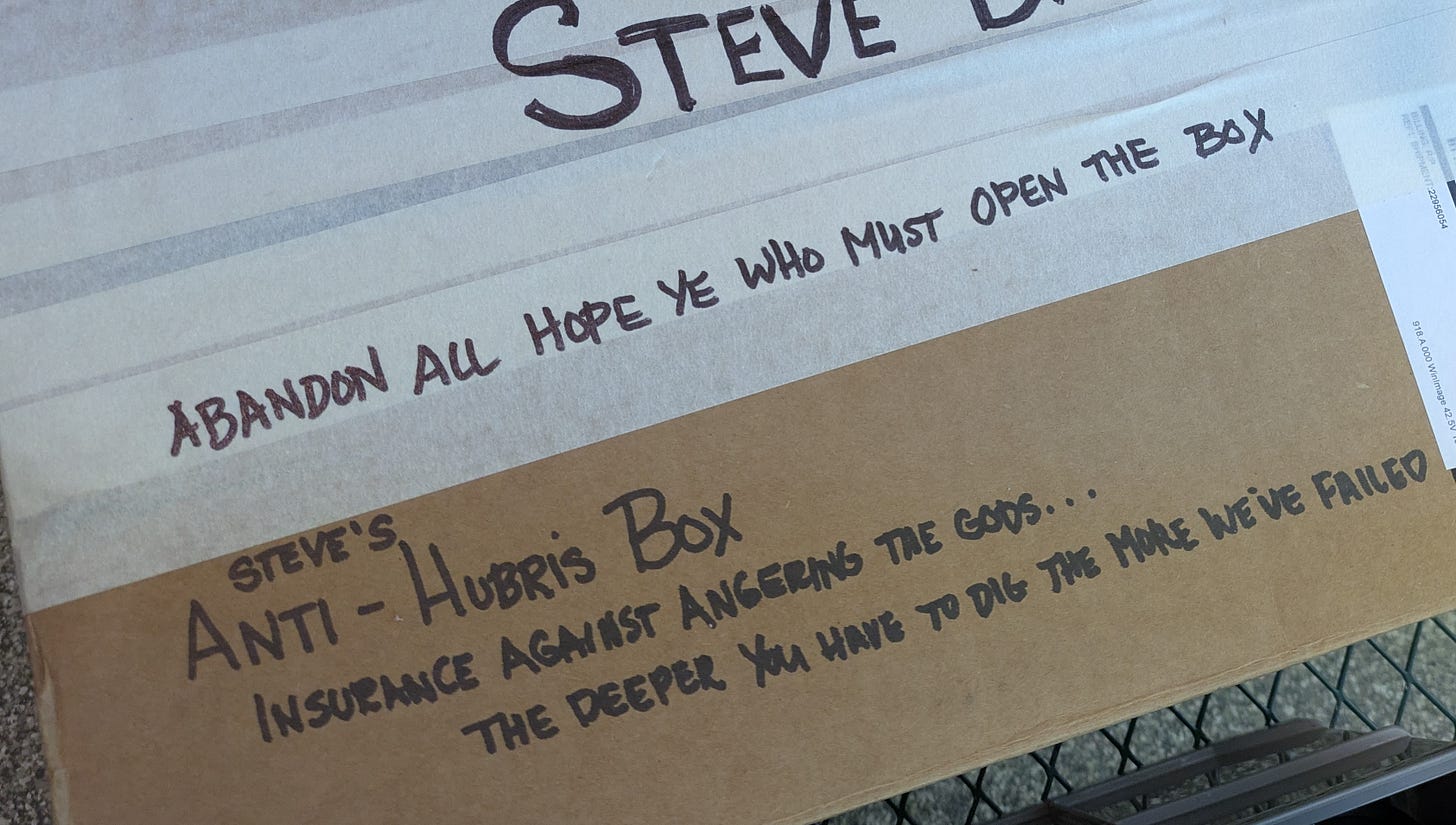 STEVE
ABANDON ALL HOPE YE WHO MUST OPEN THE BOX
STEVE'S
ANTI-HUBRIS BOX
INSURANCE AGAINST ANGERING THE GODS...
THE DEEPER YOU HAVE TO DIG THE MORE WE'VE FAILED
22956054
918 A 000 WinImage 42.5V